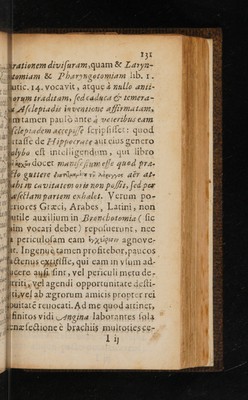 131
rationem divisuram, quam & Laryn-
tomiam & Pharyngotomiam lib. 1.
utic. 14. vocavit, atque à nullo anti-
orum traditam, sed caduca & temera-
a Asclepiadis inventione affirmatam,
m tamen paulò ante à veteribus eam
sclepiadem accepisse scripsisset: quod
ntasse de Hippocrate aut eius genero
olybo est intelligendum, qui libro
docet manifestum esse quod præ-
cto gutture aër at-
ahi in cavitatem oris non possit, sed per
sectam partem exhalet. Verum po-
riores Græci, Arabes, Latini, non
utile auxilium in Bronchotomia (sic
im vocari debet) reposuerunt, nec
periculosam eam agnove-
t. Ingenuè tamen profiteor, paucos
actenus extitisse, qui eam in usum ad-
ucere ausi sint, vel periculi metu de-
rriti, vel agendi opportunitate desti-
ti, vel ab ægrorum amicis propter rei
ovitatē revocati. Ad me quod attinet,
finitos vidi Angina laborantes sola
enæ sectione è brachiis multoties ce-
I ij